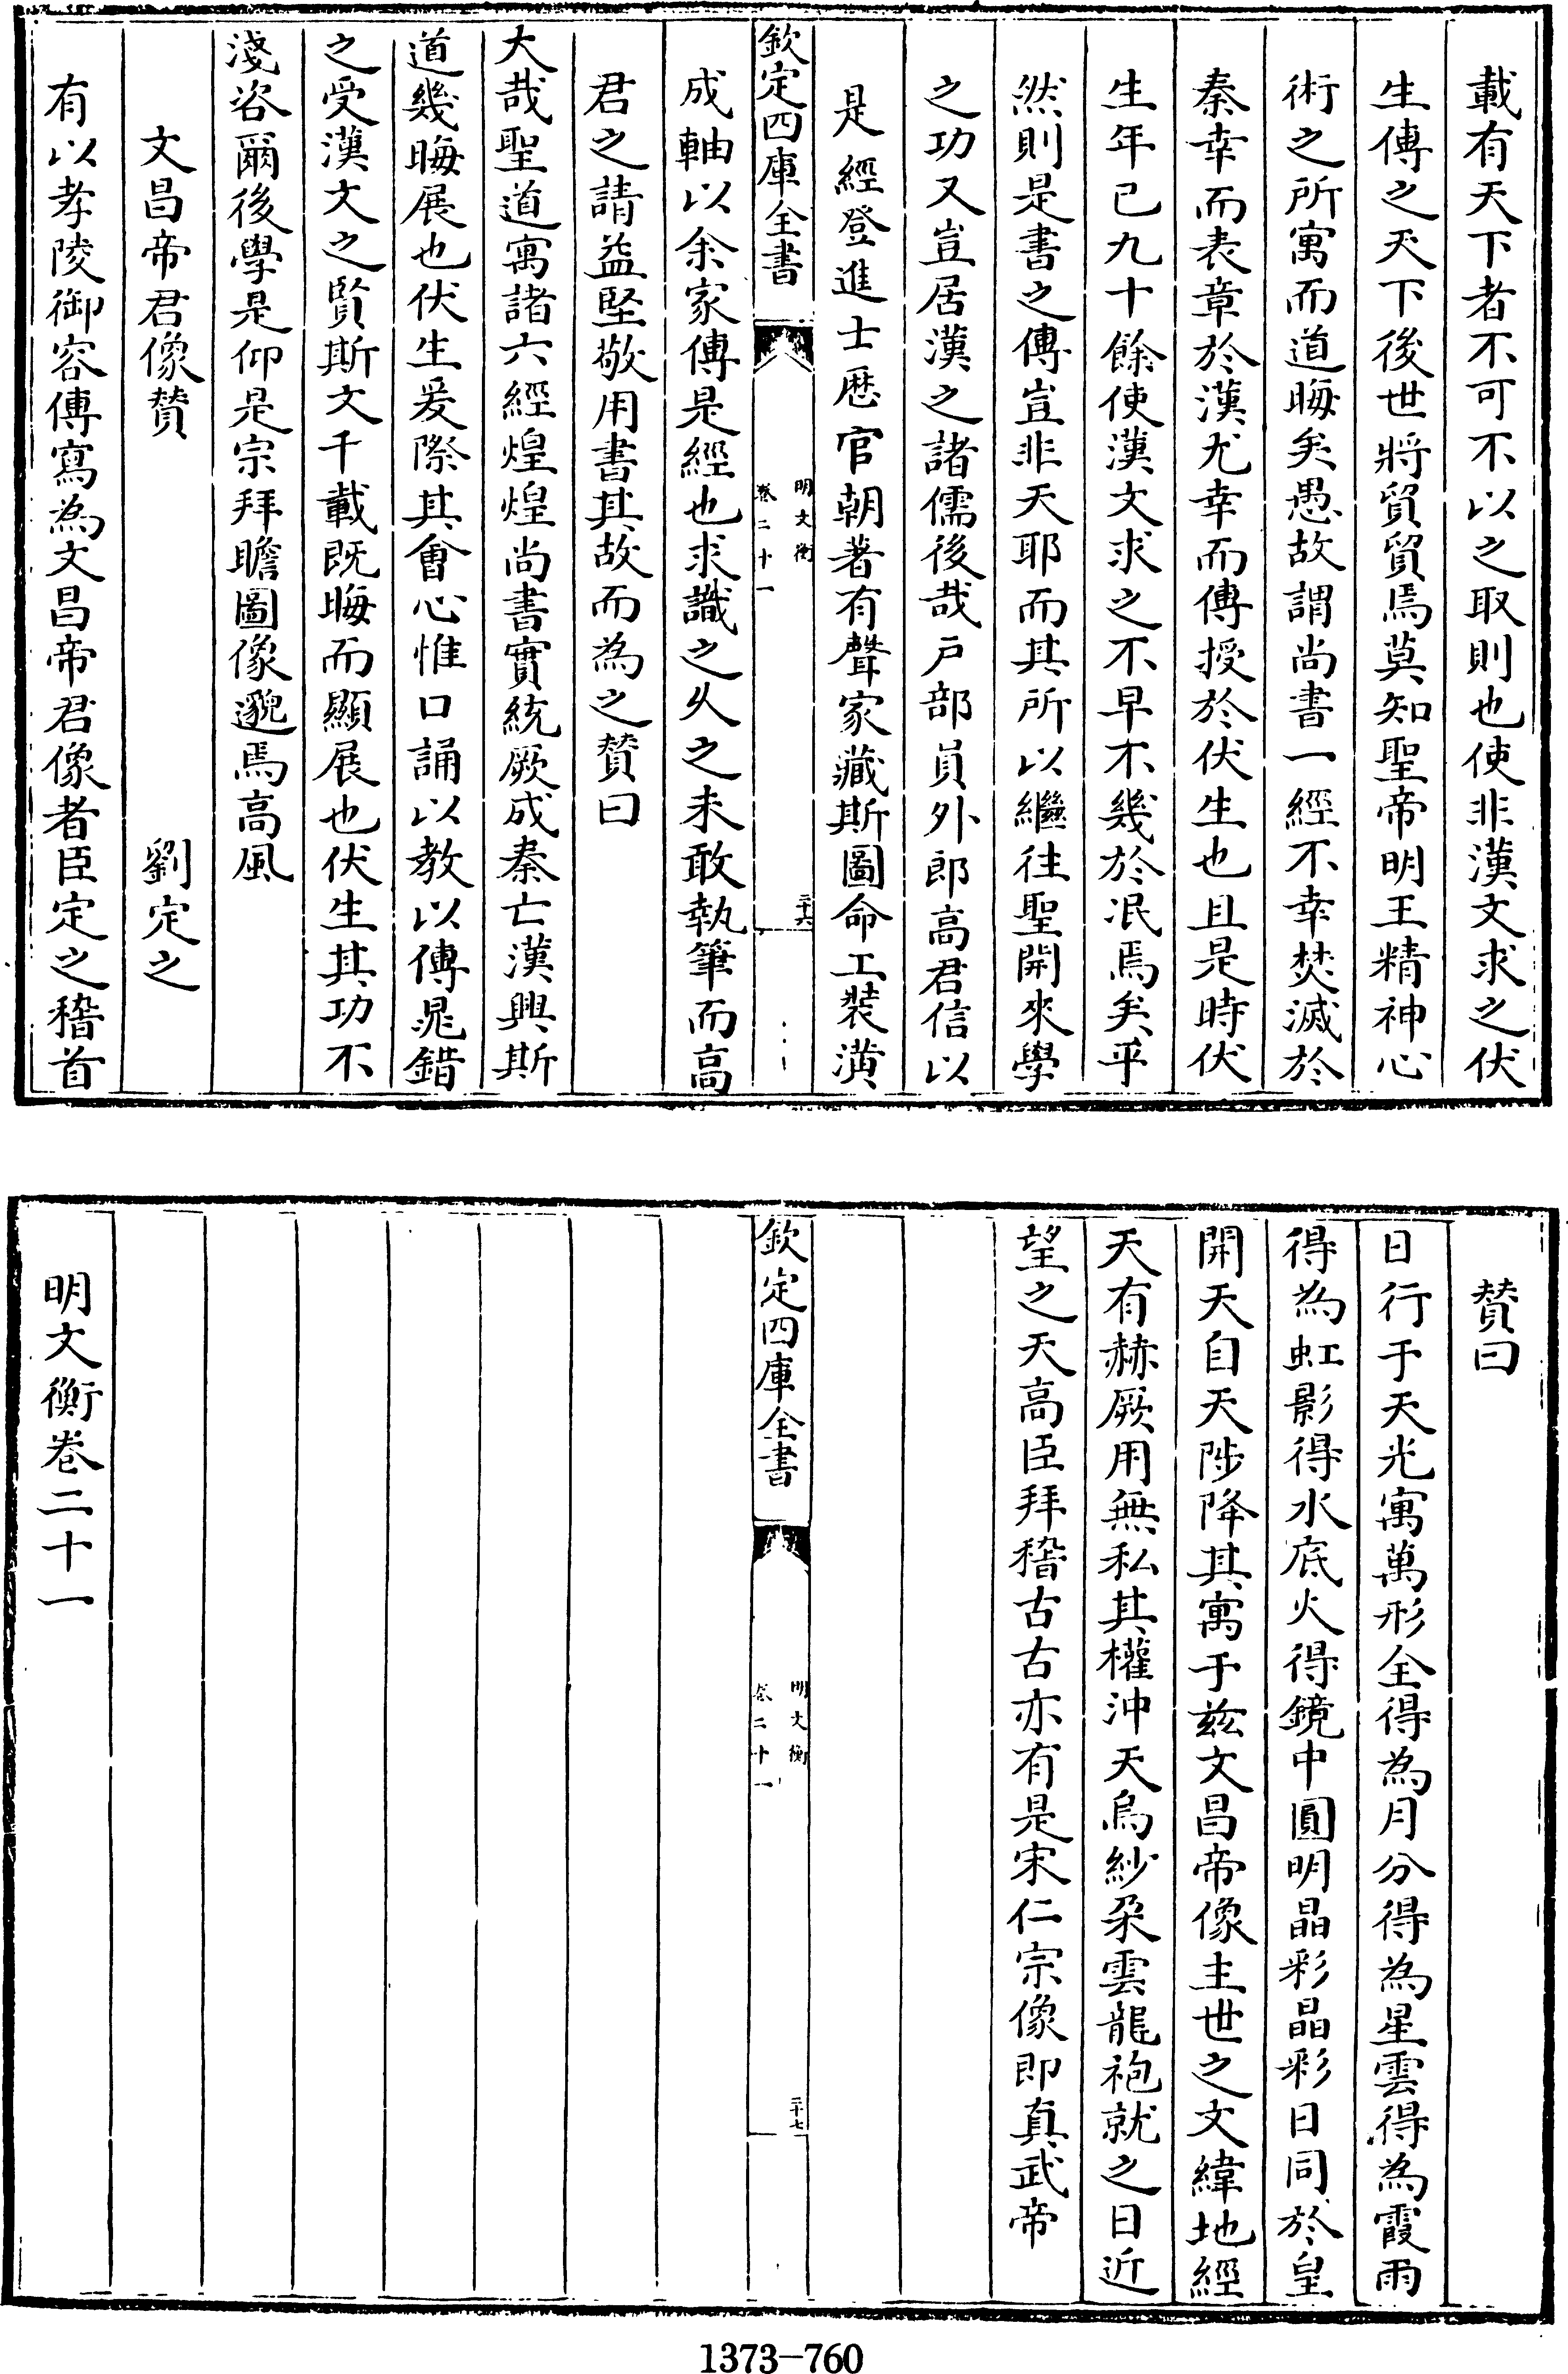 載有天下者不可不以之取則也使非漢文求之伏
生傳之天下後世將貿貿焉莫知聖帝明王精神心
術之所寓而道晦矣愚故謂尚書一經不幸焚滅於
秦幸而表章於漢尤幸而傳授於伏生也且是時伏
生年已九十餘使漢文求之不早不幾於泯焉矣乎
然則是書之傳豈非天耶而其所以繼往聖開來學
之功又豈居漢之諸儒後哉戸部員外郎高君信以
是經登進士厯官朝著有聲家藏斯圖命工裝潢
欽定四庫全書
明文衡
卷二十一
二十六
成軸以余家傳是經也求識之乆之未敢執筆而高
君之請益堅敬用書其故而為之贊曰
大哉聖道寓諸六經煌煌尚書實統厥成秦亡漢興斯
道幾晦展也伏生爰際其㑹心惟口誦以教以傳晁錯
之受漢文之賢斯文千載既晦而顯展也伏生其功不
淺咨爾後學是仰是宗拜瞻圖像邈焉高風
文昌帝君像贊　劉定之
有以孝陵御容傳寫為文昌帝君像者臣定之稽首
贊曰
日行于天光寓萬形全得為月分得為星雲得為霞雨
得為虹影得水底火得鏡中圓明晶彩晶彩日同於皇
開天自天陟降其寓于兹文昌帝像主世之文緯地經
天有赫厥用無私其權沖天烏紗朶雲龍袍就之日近
望之天高臣拜稽古古亦有是宋仁宗像即真武帝
欽定四庫全書
明文衡
卷二十一
二十七
明文衡卷二十一
1373-760